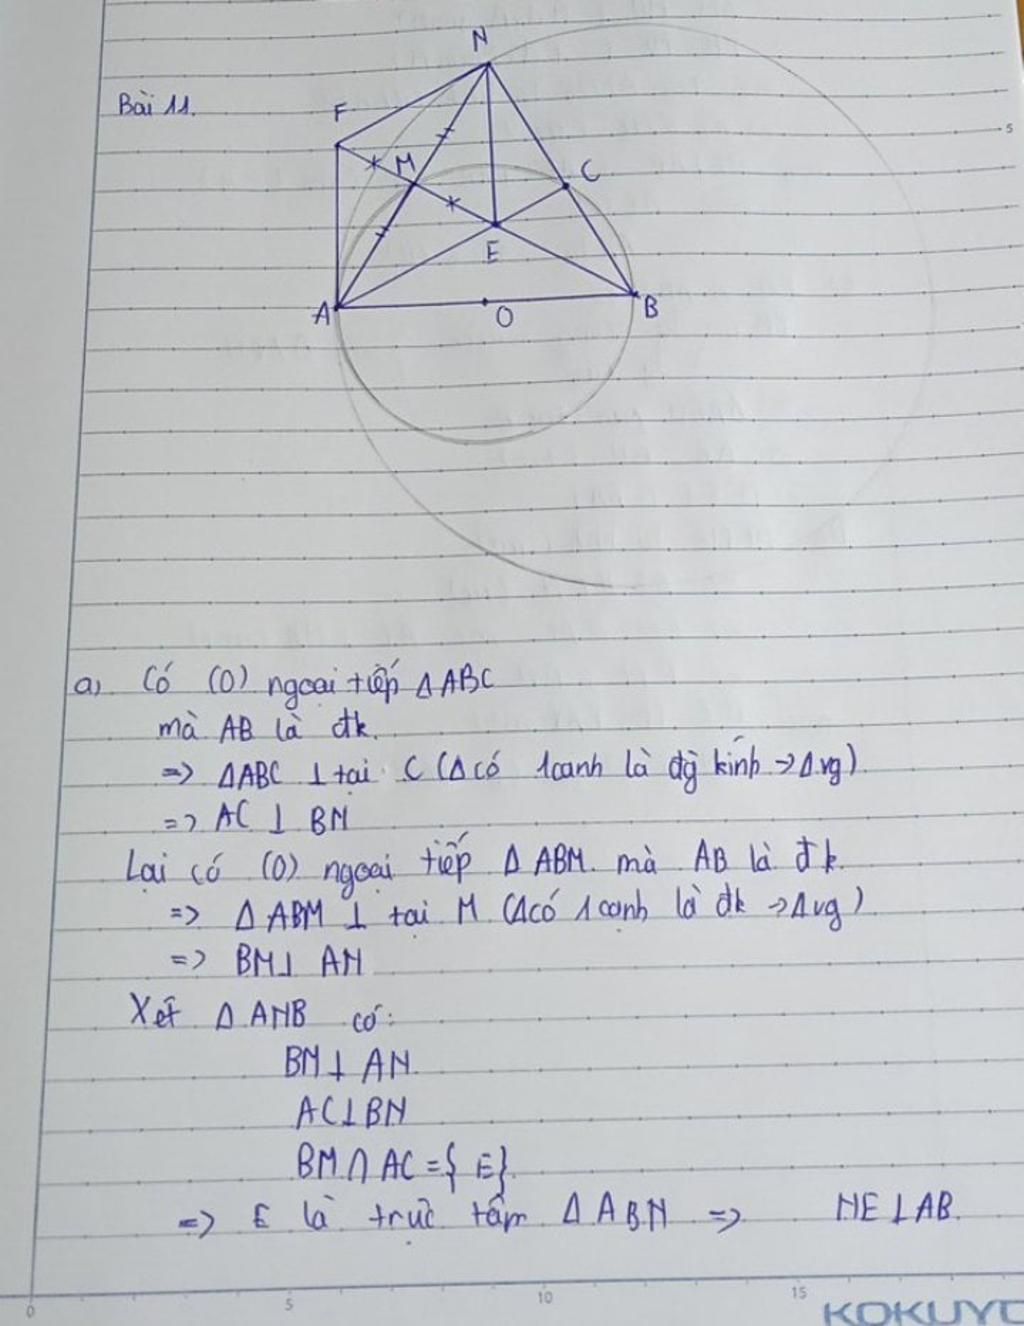 Bài 11.
N
F
M
C
E
A
O
B
5
a) Có (O) ngoại tiếp Δ ABC
mà AB là đk.
=> ΔABC ⊥ tại C (Δ có 1 cạnh là đg kính -> Δvg)
=> AC ⊥ BN
Lại có (O) ngoại tiếp Δ ABM. mà AB là đk.
=> Δ ABM ⊥ tại M (Δ có 1 cạnh là đk -> Δvg)
=> BM ⊥ AN
Xét Δ ANB có:
BM ⊥ AN.
AC ⊥ BN
BM ∩ AC = { E}.
=> E là trực tâm Δ ABN => NE ⊥ AB.
0 5 10 15
KOKUYO